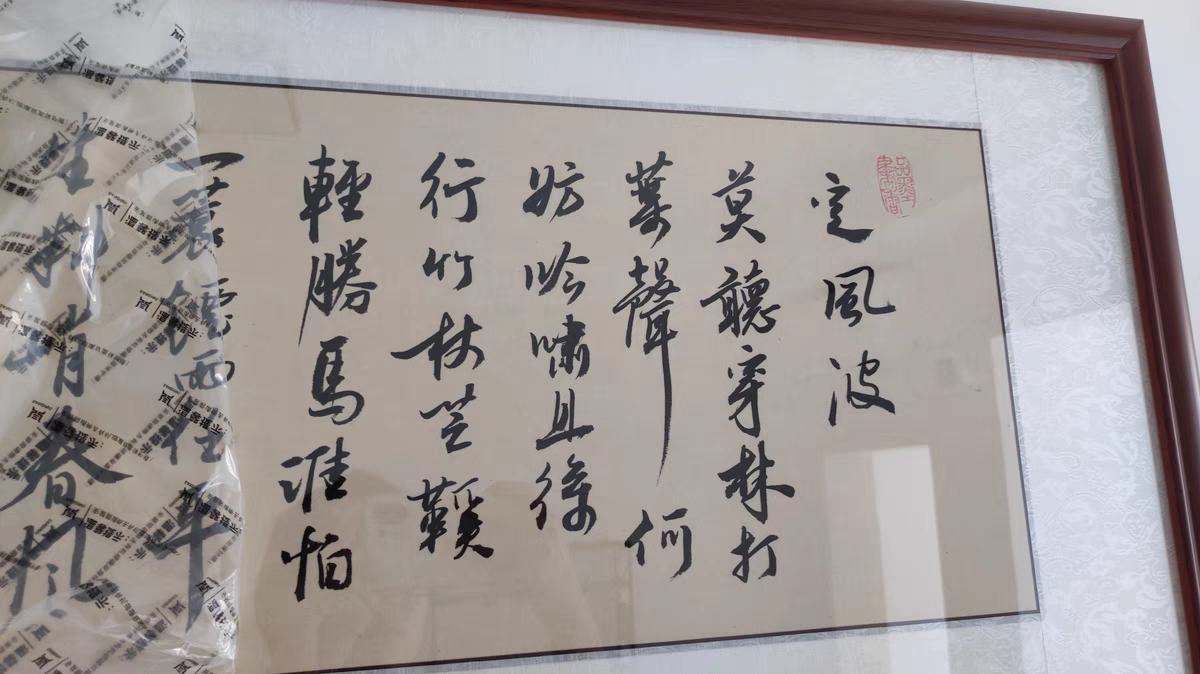 定風波
莫聽穿林打
葉聲何
妨吟嘯且徐
行竹杖芒鞵
輕勝馬誰怕
一蓑煙雨任平
生料峭春風